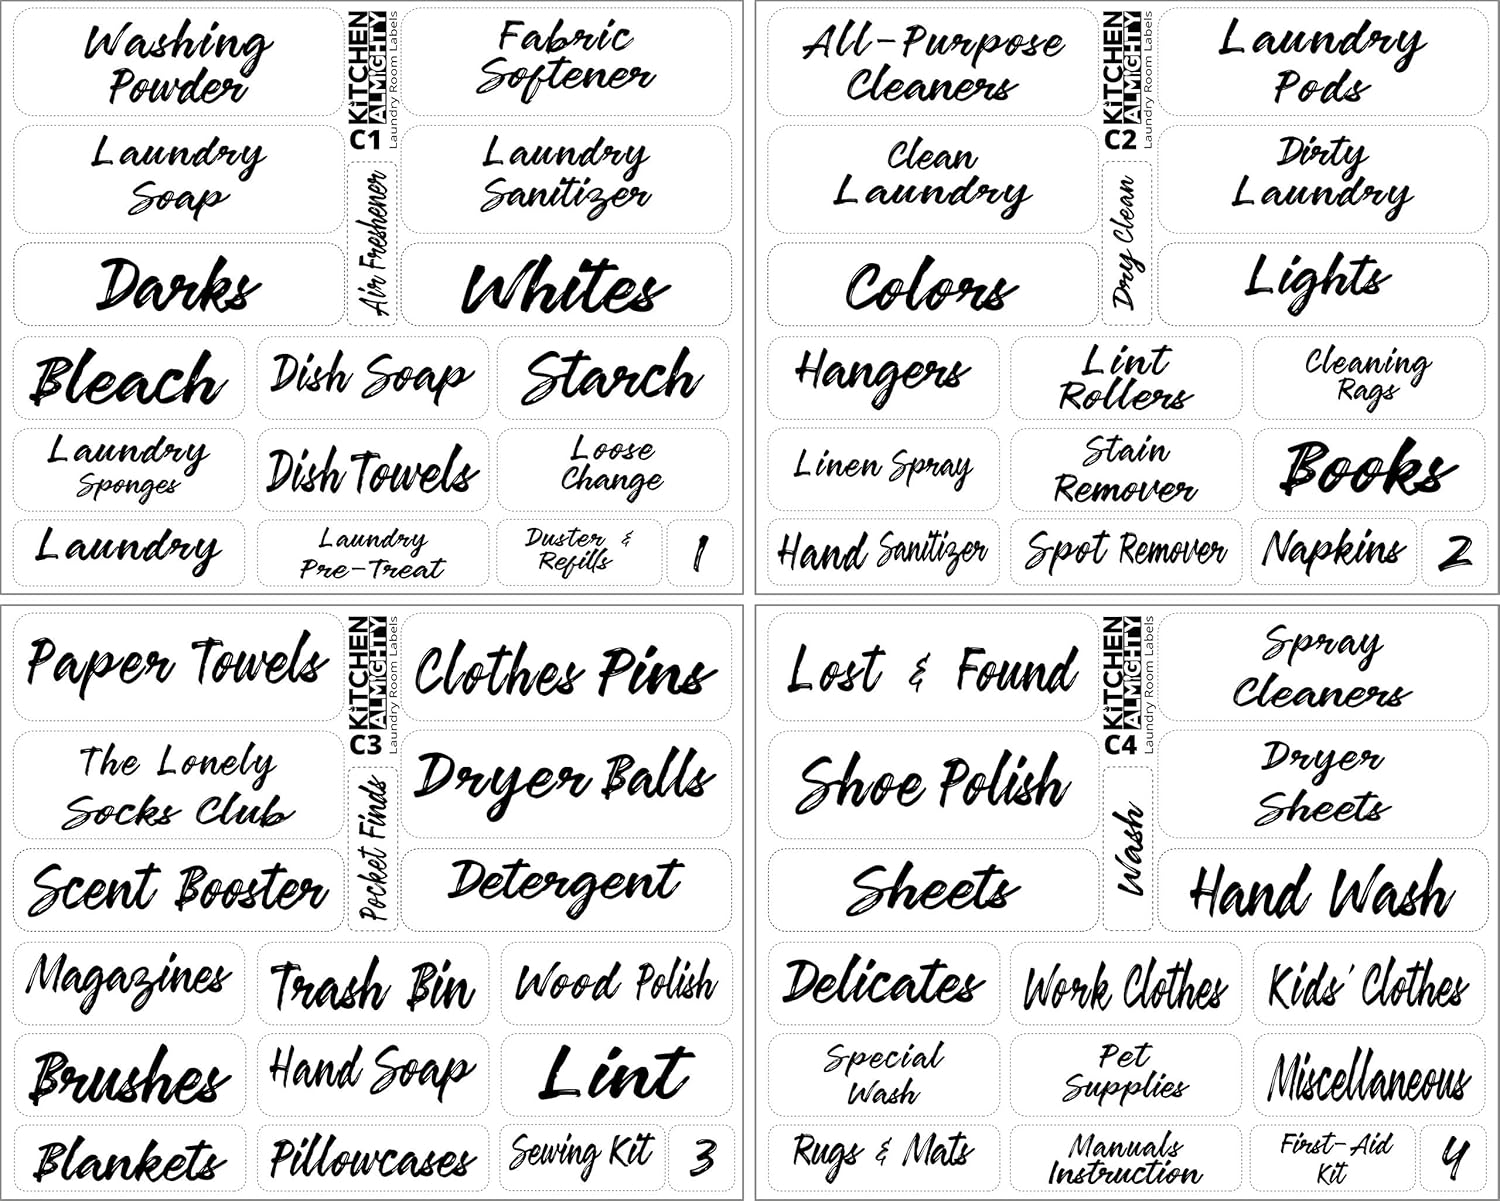 Washing
Powder
KiTCHEN
ALMIGHTY
Laundry Room Labels
C1
Fabric
Softener
Laundry
Soap
Laundry
Sanitizer
Darks
Air Freshener
Whites
Bleach
Dish Soap
Starch
Laundry
Sponges
Dish Towels
Loose
Change
Laundry
Laundry
Pre-Treat
Duster &
Refills
1
All-Purpose
Cleaners
KiTCHEN
ALMIGHTY
Laundry Room Labels
C2
Laundry
Pods
Clean
Laundry
Dirty
Laundry
Colors
Dry Clean
Lights
Hangers
Lint
Rollers
Cleaning
Rags
Linen Spray
Stain
Remover
Books
Hand Sanitizer
Spot Remover
Napkins
2
Paper Towels
KiTCHEN
ALMIGHTY
Laundry Room Labels
C3
Clothes Pins
The Lonely
Socks Club
Dryer Balls
Scent Booster
Pocket Finds
Detergent
Magazines
Trash Bin
Wood Polish
Brushes
Hand Soap
Lint
Blankets
Pillowcases
Sewing Kit
3
Lost & Found
KiTCHEN
ALMIGHTY
Laundry Room Labels
C4
Spray
Cleaners
Shoe Polish
Dryer
Sheets
Sheets
Wash
Hand Wash
Delicates
Work Clothes
Kids' Clothes
Special
Wash
Pet
Supplies
Miscellaneous
Rugs & Mats
Manuals
Instruction
First-Aid
Kit
4